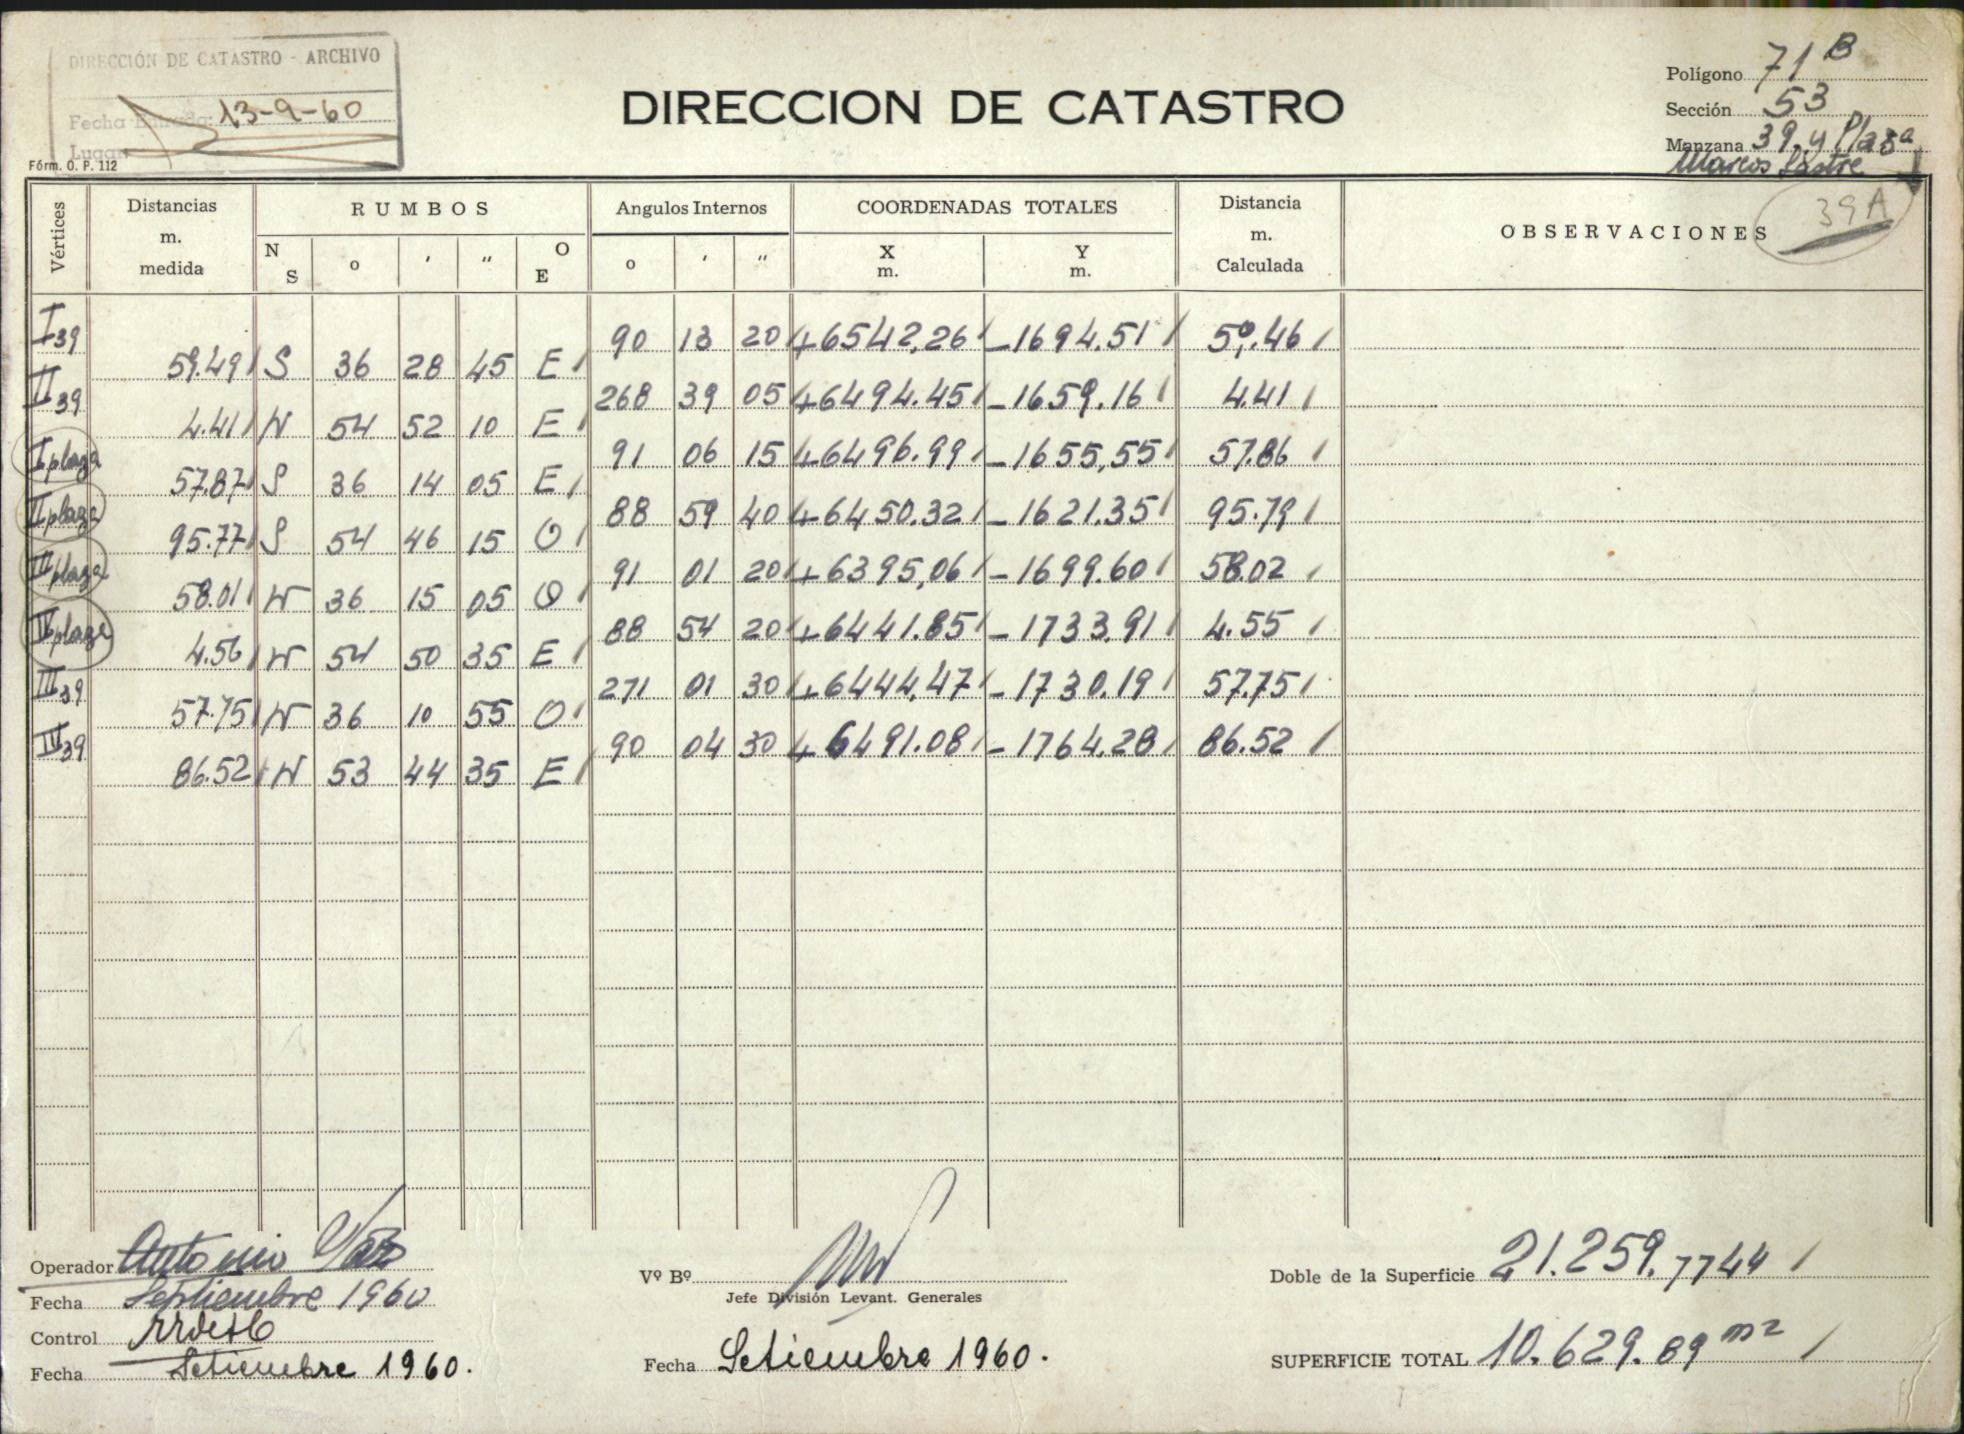 DIRECCIÓN DE CATASTRO - ARCHIVO
Fecha Entrada: 13-9-60
Lugar
Fórm. O. P. 112
DIRECCION DE CATASTRO
Polígono 71 B
Sección 53
Manzana 39 y Plaza
Marcos Sastre
39A
Vértices Distancias m. medida RUMBOS Angulos Internos COORDENADAS TOTALES Distancia m. Calculada OBSERVACIONES
N S o ' " O E o ' " X m. Y m.
I 39 90 13 20 +6542,26 -1694.51 59.46
59.49 S 36 28 45 E
II 39 268 39 05 +6494.45 -1659.16 4.41
4.41 N 54 52 10 E
I plaza 91 06 15 +6496.99 -1655,55 57.86
57.87 S 36 14 05 E
II plaza 88 59 40 +6450.32 -1621.35 95.79
95.77 S 54 46 15 O
III plaza 91 01 20 +6395,06 -1699.60 58.02
58.01 N 36 15 05 O
IV plaza 88 54 20 +6441.85 -1733.91 4.55
4.56 N 54 50 35 E
III 39 271 01 30 +6444,47 -1730.19 57.75
57.75 N 36 10 55 O
IV 39 90 04 30 +6491.08 -1764.28 86.52
86.52 N 53 44 35 E
Operador Antonio
Fecha Septiembre 1960
Control
Fecha Setiembre 1960.
Vº Bº
Jefe División Levant. Generales
Fecha Setiembre 1960.
Doble de la Superficie 21.259.7744
SUPERFICIE TOTAL 10.629.89 m2